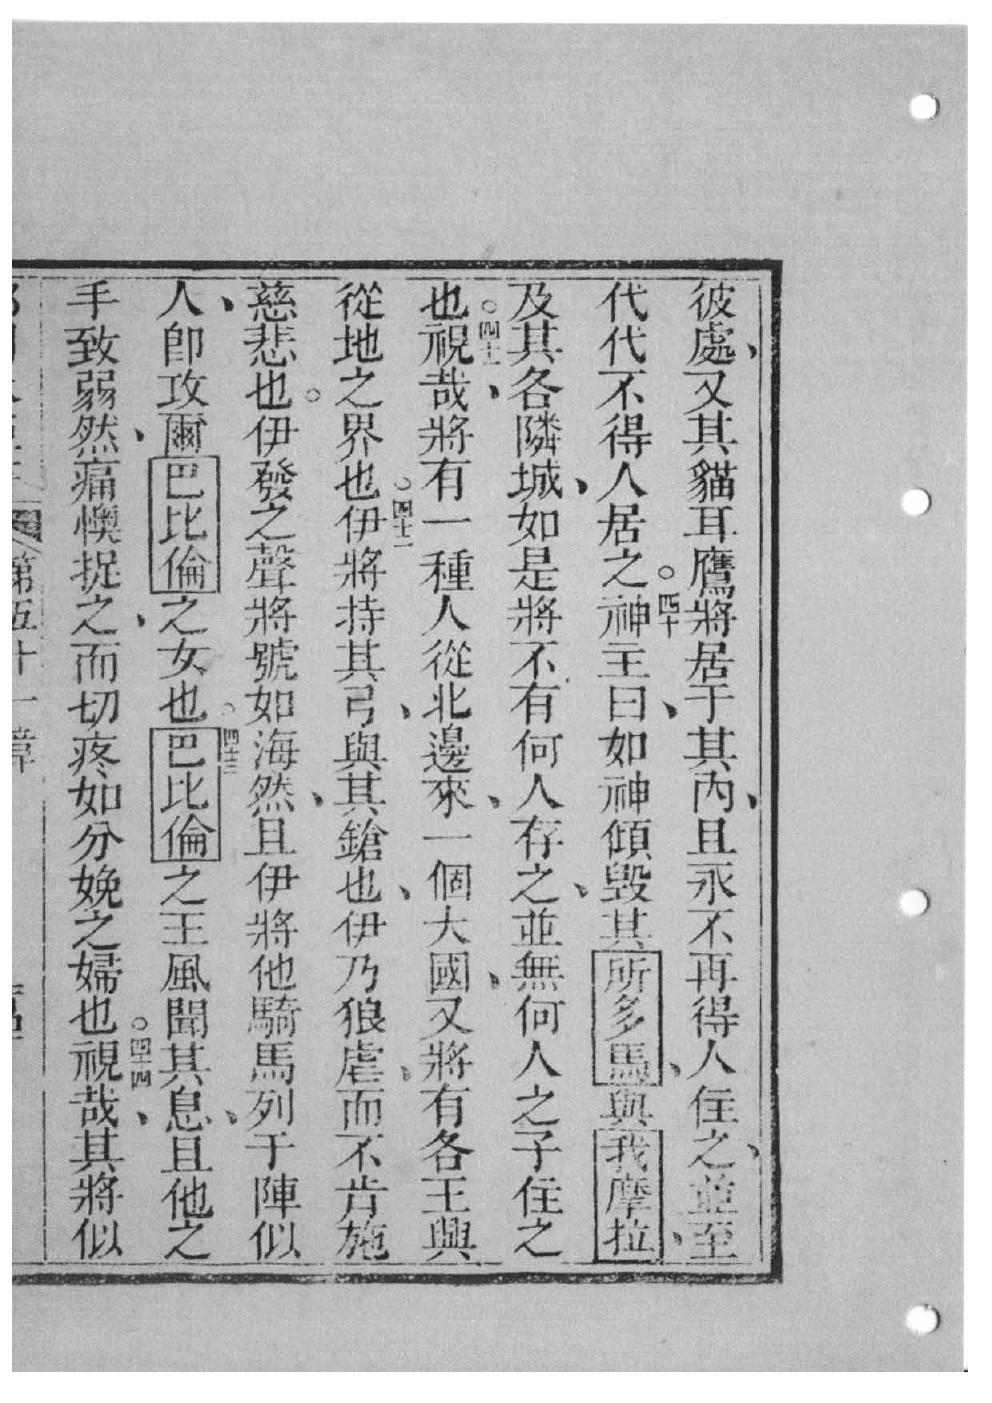 彼處、又其貓耳鷹將居于其內、且永不再得人住之、並至
代代不得人居之。四十神主曰、如神傾毀其所多馬、與我摩拉、
及其各隣城、如是將不有何人存之、並無何人之子住之
也。四十一視哉、將有一種人從北邊來、一個大國、又將有各王興
從地之界也。四十二伊將持其弓、與其鎗也、伊乃狼虐、而不肯施
慈悲也。伊發之聲將號如海然、且伊將他騎馬列于陣似
人、卽攻爾巴比倫之女也。四十三巴比倫之王風聞其息、且他之
手致弱然、痛懊捉之、而切疼如分娩之婦也。四十四視哉、其將似
第五十一章